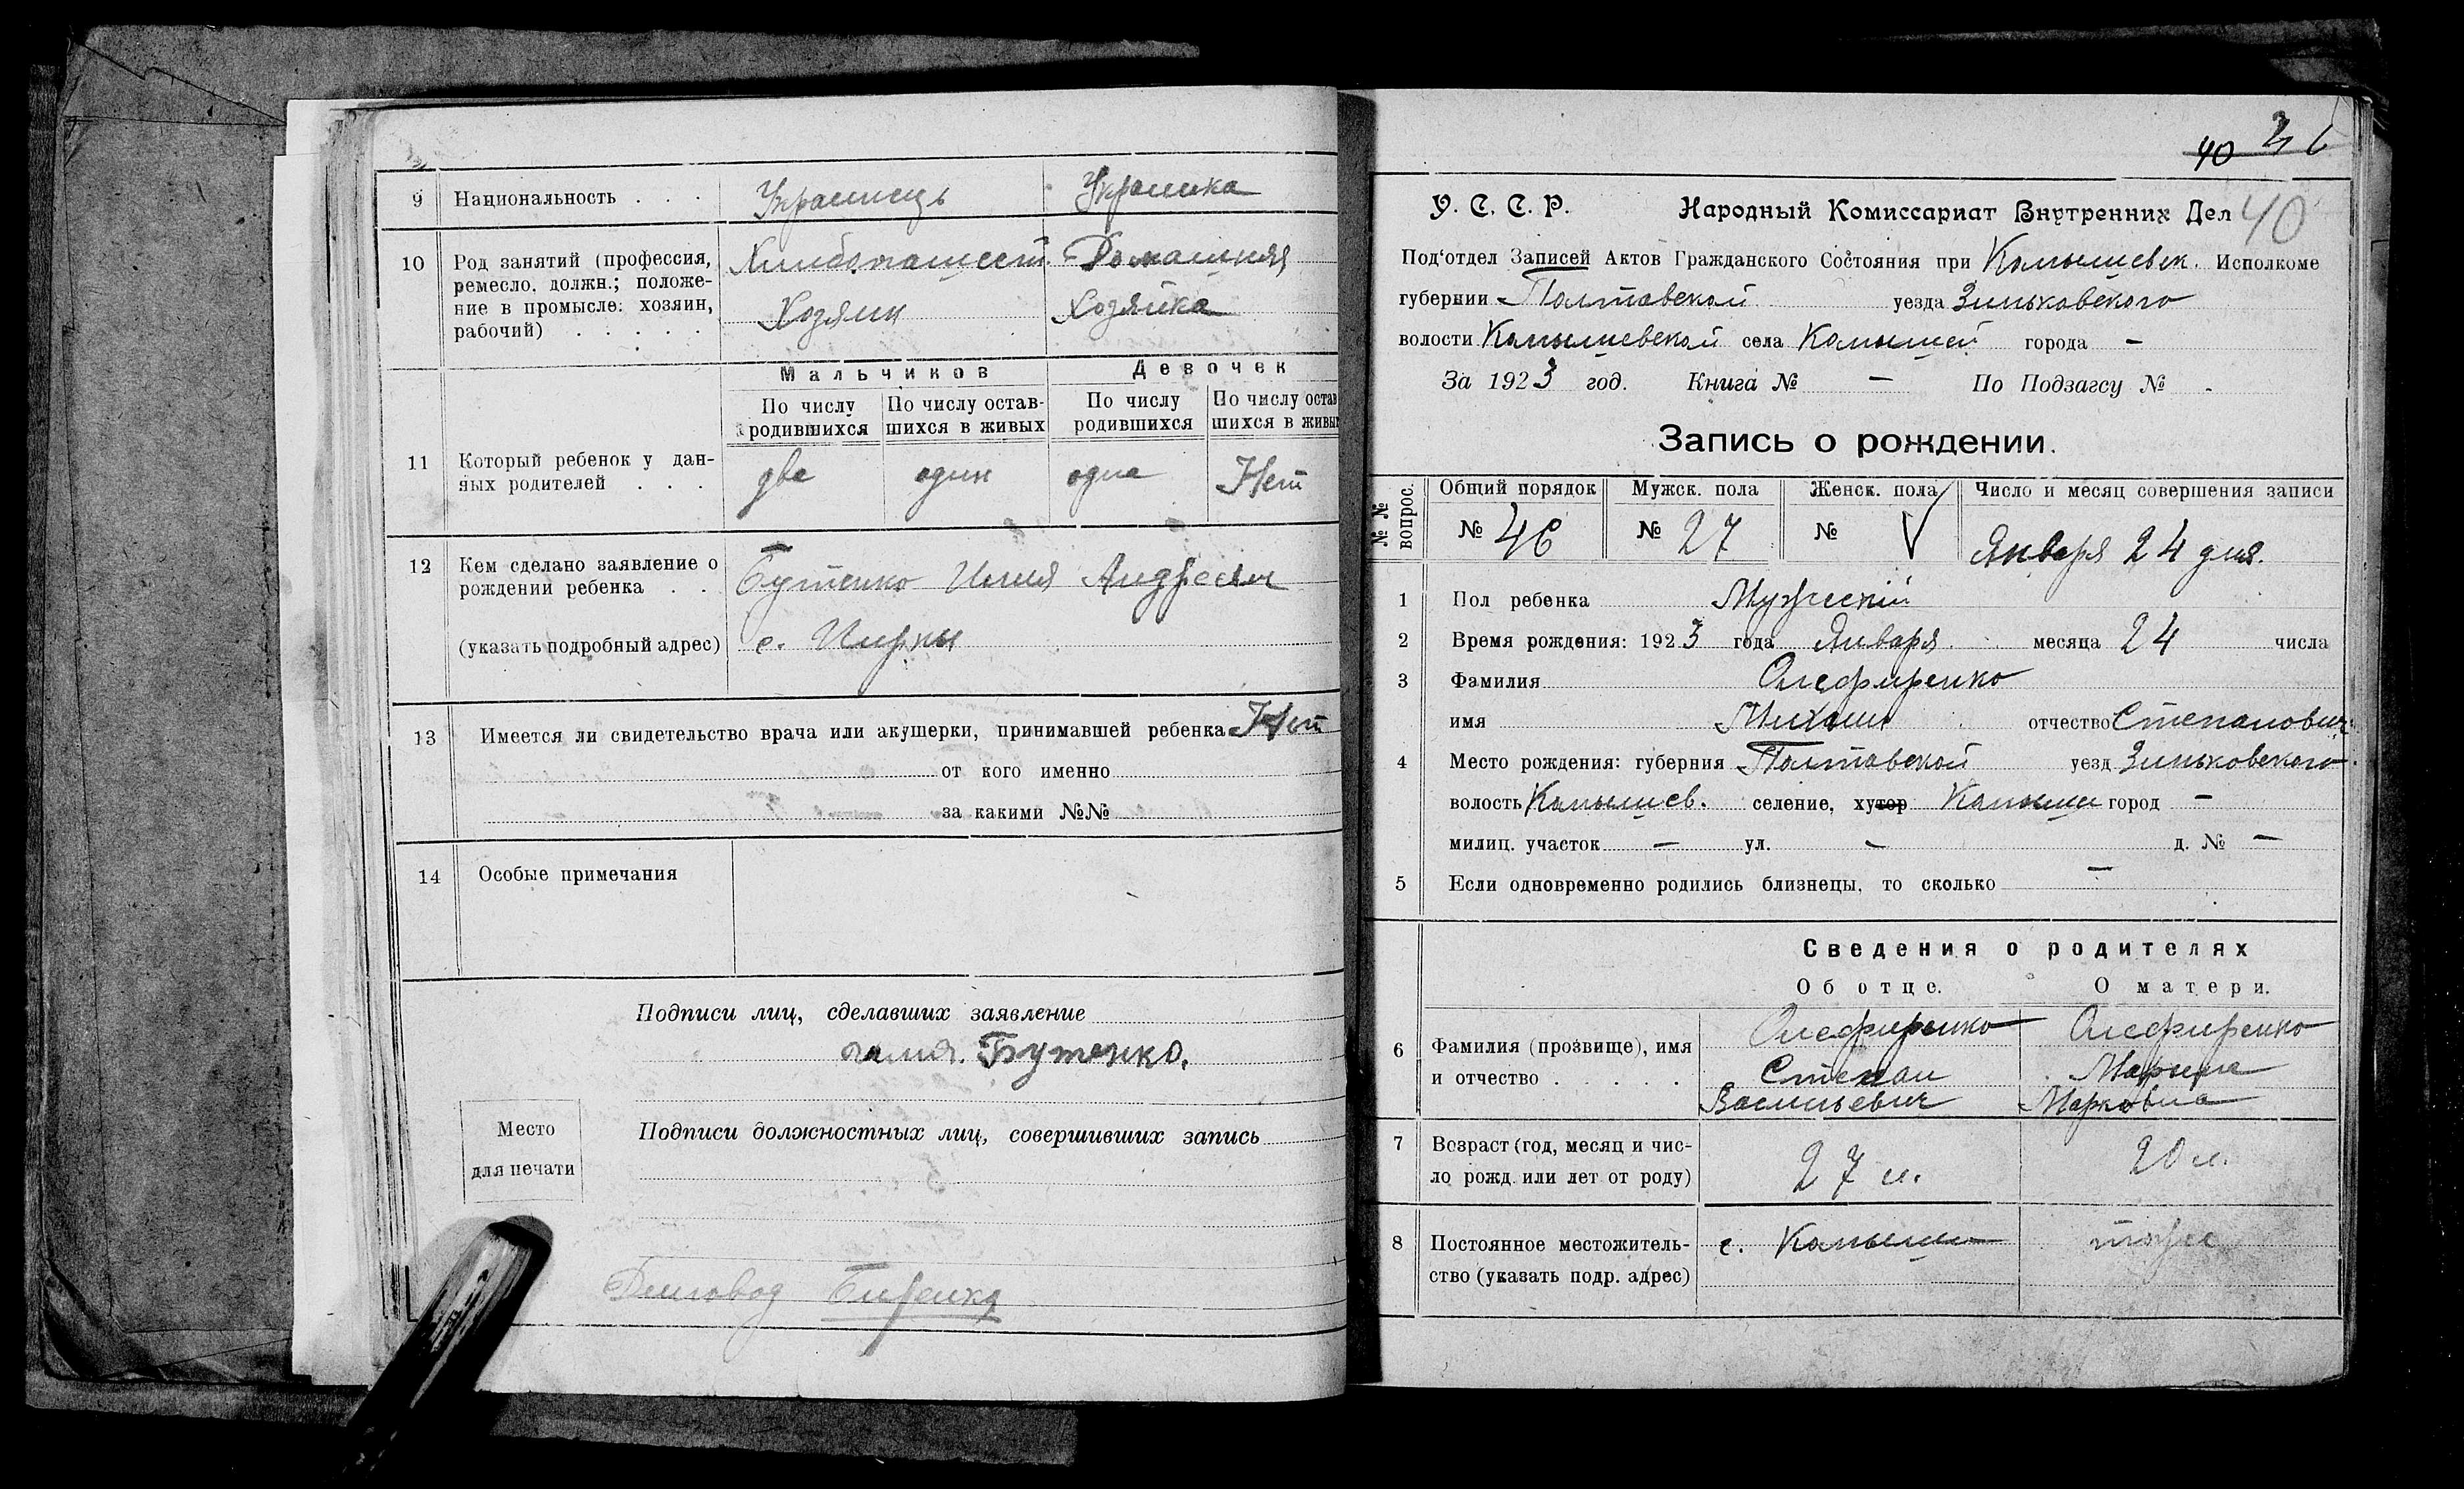 9 Национальность . . . Украинець Украинка
10 Род занятий (профессия, Хлибопашест. Домашняя
ремесло, должн.; положе-
ние в промысле: хозяин, Хозяин Хозяйка
рабочий) . . . . .
Мальчиков Девочек
По числу По числу остав- По числу По числу остав
родившихся шихся в живых родившихся шихся в живых
11 Который ребенок у дан- две один одна Нет
ных родителей . . .
12 Кем сделано заявление о Бутенко Илия Андреевич
рождении ребенка . .
(указать подробный адрес) с.
13 Имеется ли свидетельство врача или акушерки, принимавшей ребенка Нет
от кого именно
за какими №№
14 Особые примечания
Подписи лиц, сделавших заявление
Бутенко.
Место Подписи должностных лиц, совершивших запись
для печати
Диловод
40
У. С. С. Р. Народный Комиссариат Внутренних Дел 40
Под'отдел Записей Актов Гражданского Состояния при Камышевск. Исполкоме
губернии Полтавской уезда Зиньковского
волости Камышевской села Камышей города —
За 1923 год. Книга № — По Подзагсу № -
Запись о рождении.
№ № вопрос. Общий порядок Мужск. пола Женск. пола Число и месяц совершения записи
№ 46 № 27 № V Января 24 дня.
1 Пол ребенка Мужеский
2 Время рождения: 1923 года Января месяца 24 числа
3 Фамилия Олефиренко
имя Михаил отчество Степанович
4 Место рождения: губерния Полтавской уезд Зиньковского
волость Камышев. селение, хутор Камыши город —
милиц. участок — ул. — д. № —
5 Если одновременно родились близнецы, то сколько —
Сведения о родителях
Об отце. О матери.
6 Фамилия (прозвище), имя Олефиренко Олефиренко
и отчество . . . . . Степан Марына
Васильевич Марковна
7 Возраст (год, месяц и чис- 27 л. 20 л.
ло рожд. или лет от роду)
8 Постоянное местожитель- с. Камыши тоже
ство (указать подр. адрес)